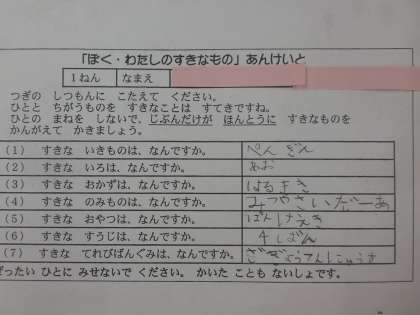 「ぼく・わたしのすきなもの」あんけいと
1ねん なまえ
つぎの しつもんに こたえて ください。
ひとと ちがうものを すきなことは すてきですね。
ひとの まねを しないで、じぶんだけが ほんとうに すきなものを
かんがえて かきましょう。
(1) すきな いきものは、なんですか。 ぺんぎん
(2) すきな いろは、なんですか。 あお
(3) すきな おかずは、なんですか。 はるまき
(4) すきな のみものは、なんですか。 みつやさいだーあ
(5) すきな おやつは、なんですか。 ぱんけえき
(6) すきな すうじは、なんですか。 4ばん
(7) すきな てれびばんぐみは、なんですか。
ぜったい ひとに みせないで ください。 かいた ことも ないしょです。